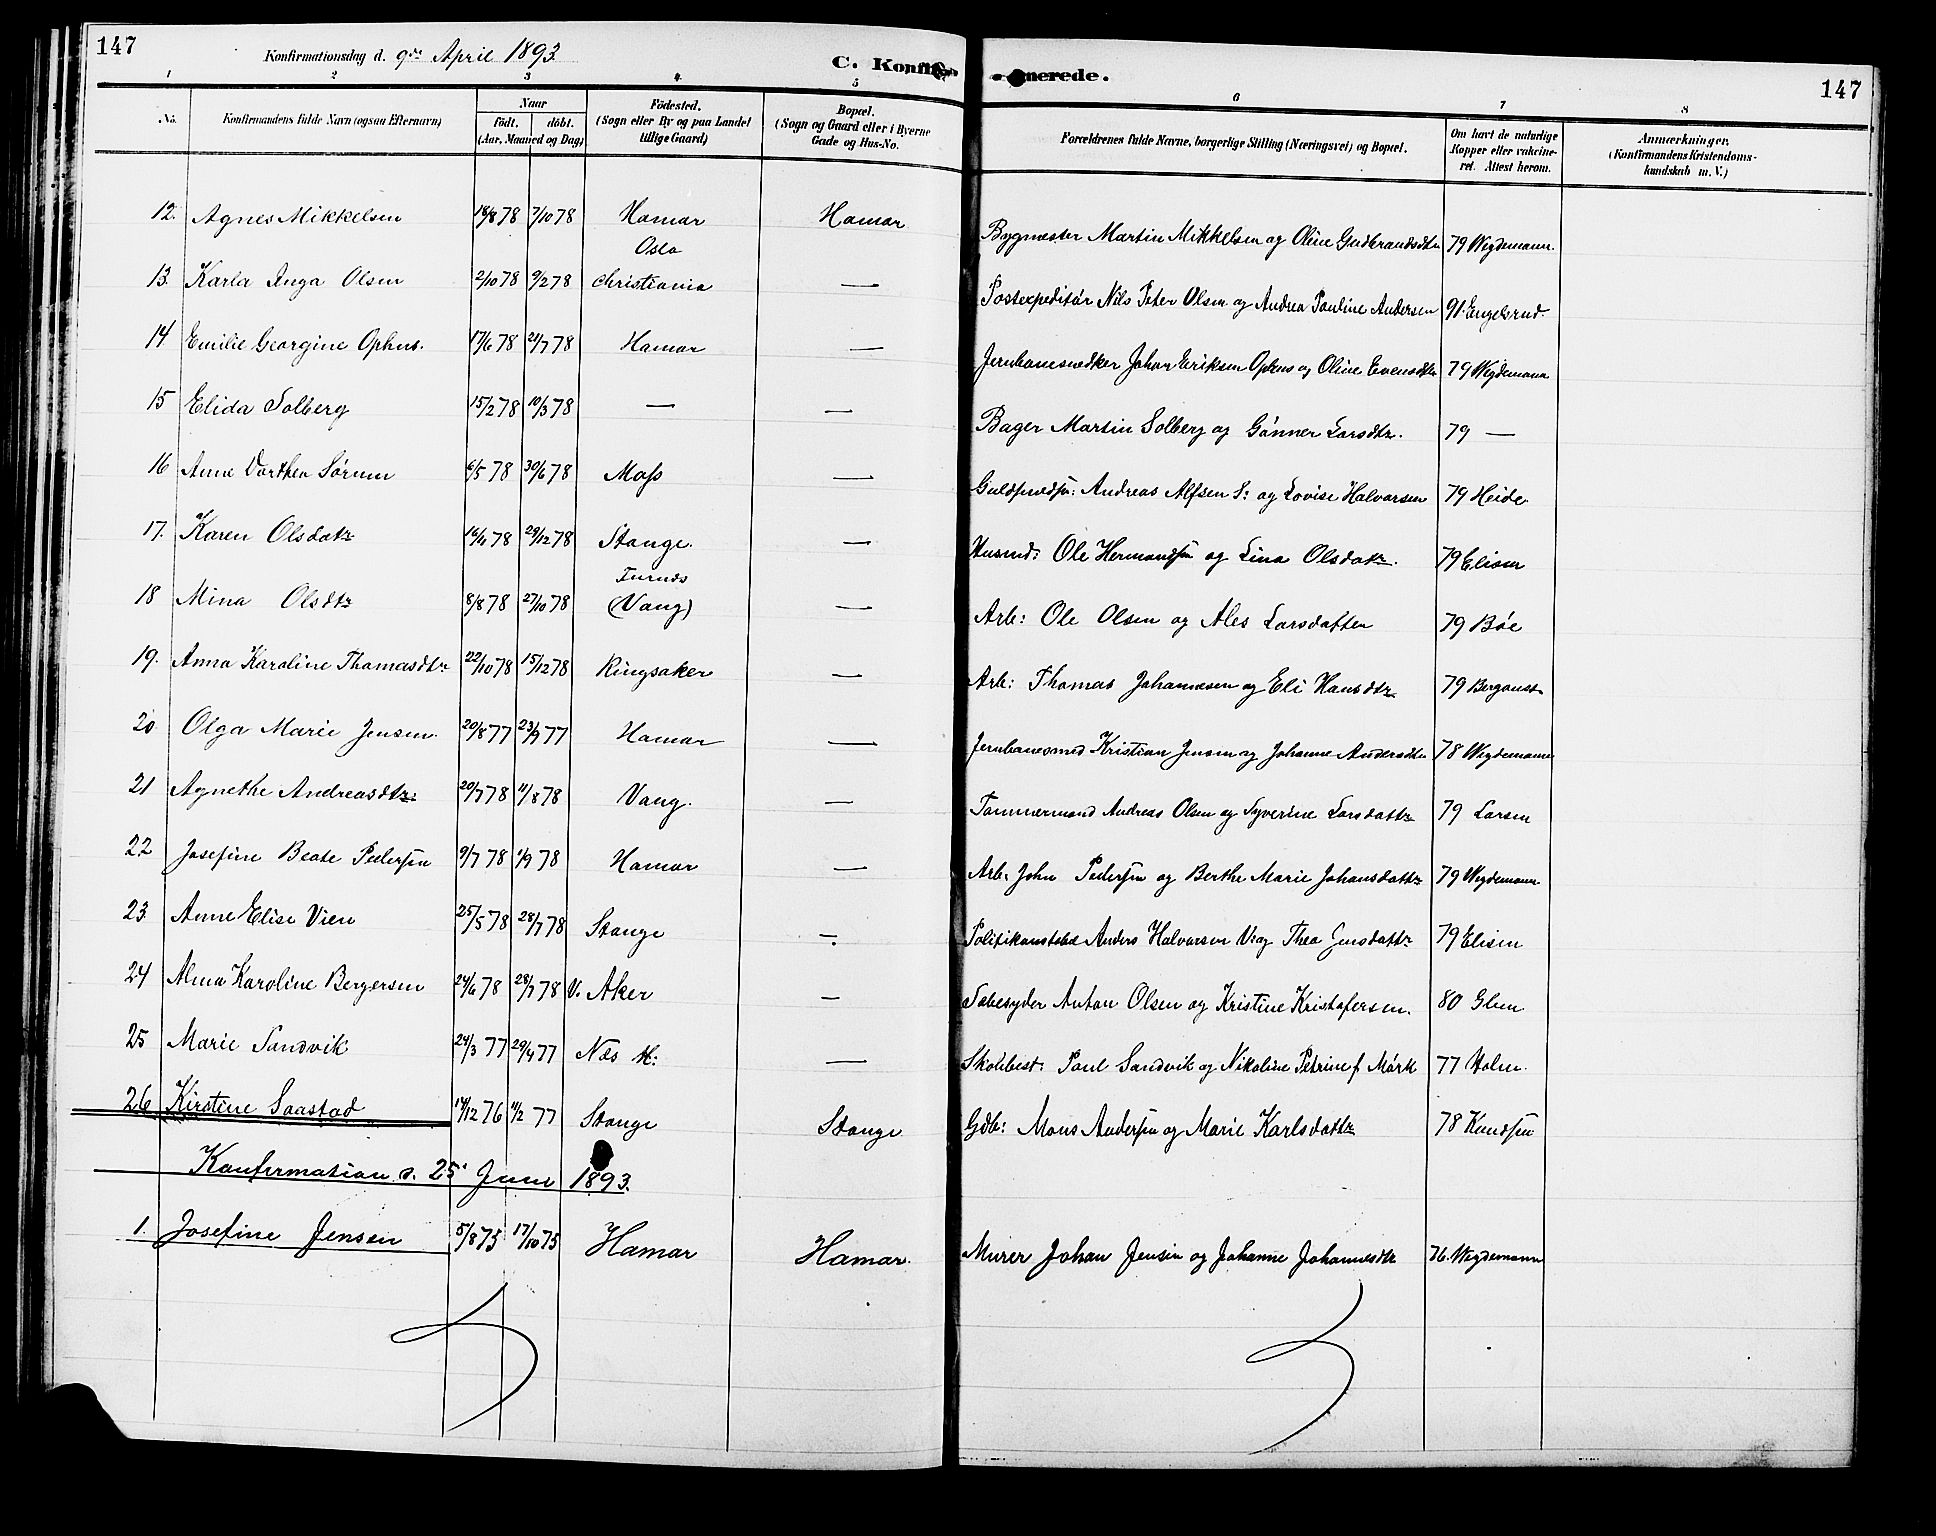 147
Konfirmationsdag d. 9de April 1893
C. Konfirmerede.
147
1 2 3 4 5 6 7 8
No. Konfirmandens fulde Navn (ogsaa Efternavn) Naar födt. döbt. (Aar, Maaned og Dag) Födested. (Sogn eller By og paa Landet tillige Gaard) Bopæl. (Sogn og Gaard eller i Byerne Gade og Hus-No. Forældrenes fulde Navne, borgerlige Stilling (Næringsvei) og Bopæl. Om havt de naturlige Kopper eller vakcineret. Attest herom. Anmærkninger. (Konfirmandens Kristendomskundskab m. V.)
12. Agnes Mikkelsen 18/8 78 7/10 78 Hamar Hamar Bygmester Martin Mikkelsen og Oline Gudbrandsdtr 79 Wegdemann
13. Karla Inga Olsen 2/10 78 9/2 78 Oslo Christiania — Postexpeditör Nils Peter Olsen og Andrea Pauline Andersen 91. Engelsrud.
14 Emilie Georgine Ophus. 17/6 78 21/7 78 Hamar — Jernbanesnedker Johan Eriksen Ophus og Oline Evensdtr 79 Wegdemann
15 Elida Solberg 15/2 78 10/3 78 — — Bager Martin Solberg og Gönner Larsdtr. 79 —
16 Anne Dorthea Sörum 6/5 78 30/6 78 Moss — Guldsmedsv: Andreas Alfsen S: og Lovise Halvorsen 79 Heide
17. Karen Olsdatr 16/4 78 29/12 78 Stange. — Husmd: Ole Hermandsen og Lina Olsdatr. 79 Elisen
18 Mina Olsdtr 8/8 78 27/10 78 Furnes (Vang) — Arb: Ole Olsen og Ales Larsdatter 79 Böe
19. Anna Karoline Thomasdtr 22/10 78 15/12 78 Ringsaker — Arb: Thomas Johannesen og Eli Hansdtr 79 Bergaust
20 Olga Marie Jensen. 20/8 77 23/9 77 Hamar — Jernbanesmed Kristian Jensen og Johanne Andersdtr 78 Wegdemann
21 Agnethe Andreasdtr: 20/7 78 11/8 78 Vang. — Tömmermand Andreas Olsen og Syverine Larsdattr 79 Larsen
22 Josefine Beate Pedersen 9/7 78 1/9 78 Hamar — Arb. John Pedersen og Berthe Marie Johansdattr 79 Wegdemann
23 Anne Elise Vien 25/5 78 28/7 78 Stange — Politikonstabel Anders Halvorsen V: og Thea Jensdattr 79 Elisen
24 Alma Karoline Bergersen 24/6 78 28/7 78 V. Aker — Sæbesyder Anton Olsen og Kristine Kristofersen. 80 Glen
25 Marie Sandvik 24/3 77 29/4 77 Næs H: — Skolebest: Paul Sandvik og Nikoline Petrine f Mörk 77 Holm.
26 Kirstine Saastad 14/12 76 11/2 77 Stange Stange Gdb: Mons Andersen og Marie Karlsdattr 78 Knudsen
Konfirmation d. 25' Juni 1893.
1. Josefine Jensen 5/8 75 17/10 75 Hamar Hamar. Murer Johan Jensen og Johanne Johannesdtr 76. Wegdemann